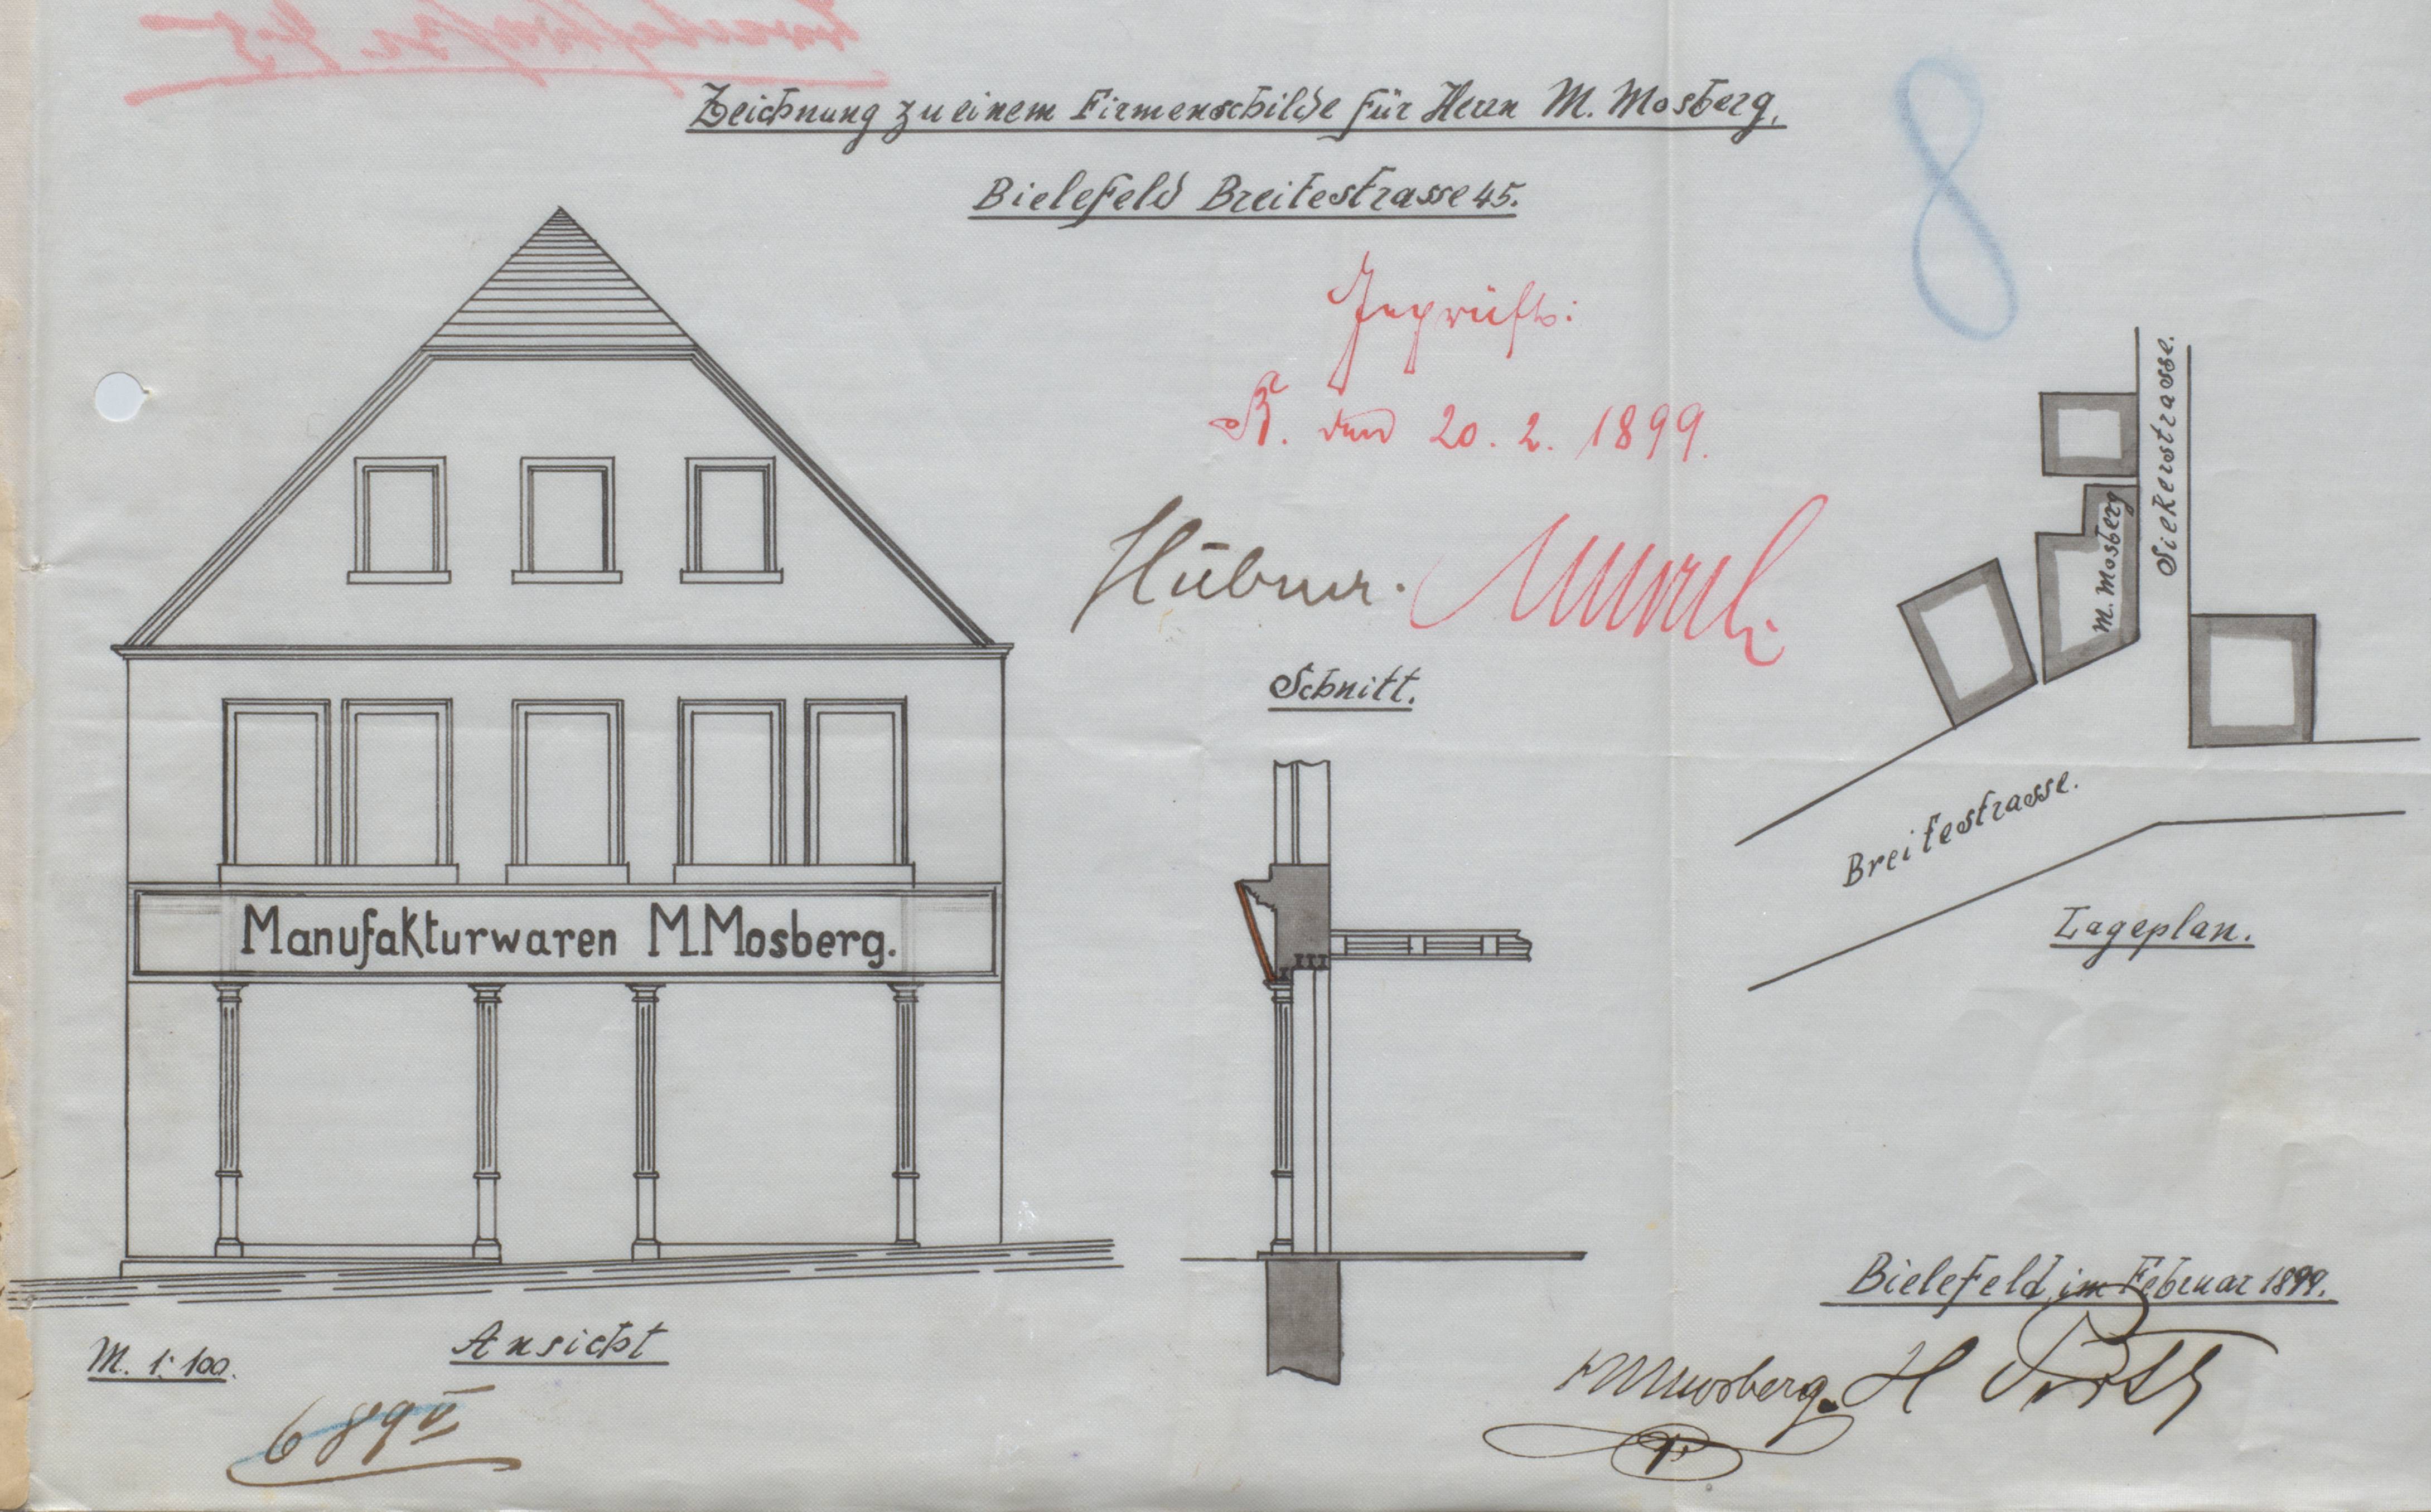 Zeichnung zu einem Firmenschilde für Herrn M. Mosberg.
Bielefeld Breitestrasse 45.
8
Geprüft:
B. den 20. 2. 1899.
Hübner.
Schnitt.
Siekerstrasse.
M. Mosberg
Breitestrasse.
Lageplan.
Manufakturwaren M. Mosberg.
Ansicht
M. 1:100.
689 II
Bielefeld, im Februar 1899.
M Mosberg. H